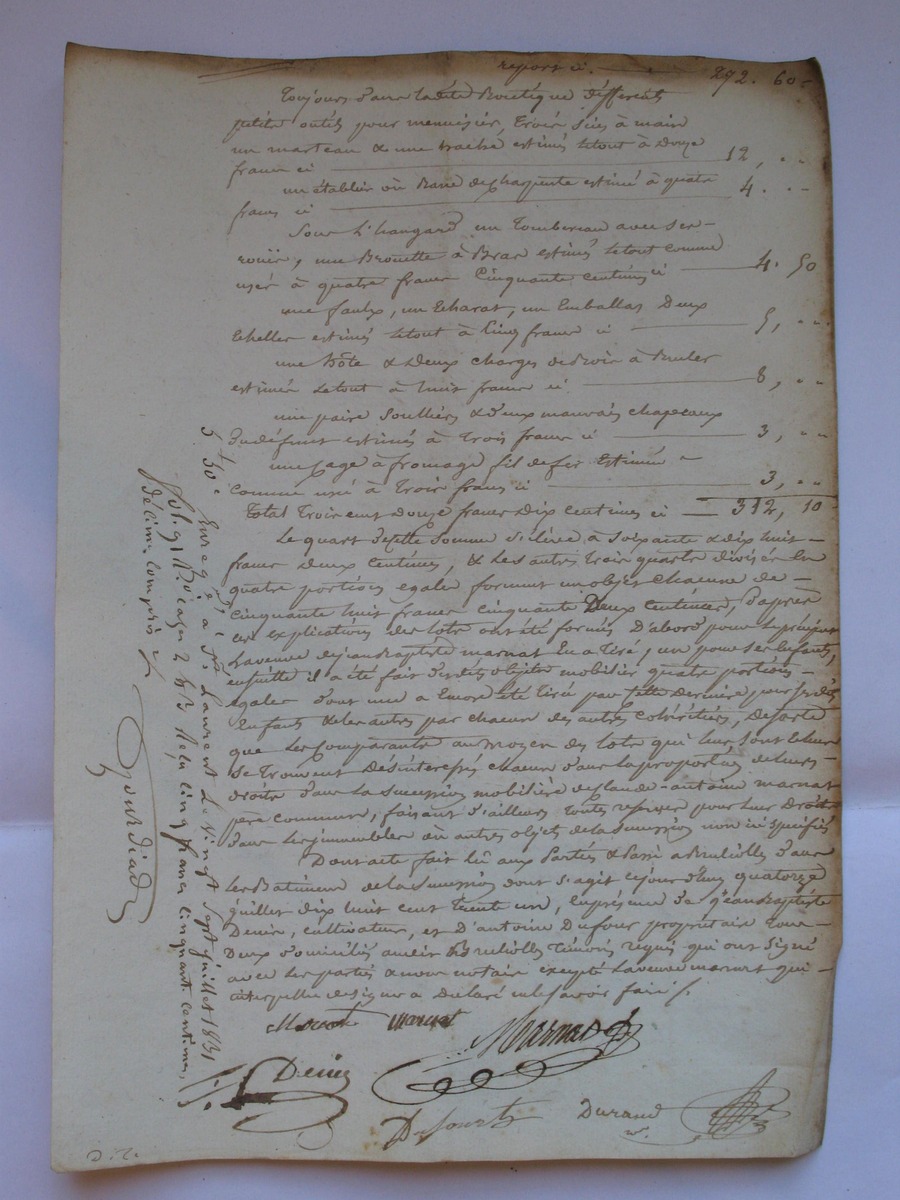 report ci. 292. 60 c
Toujours dans ladite Boutique différents
petits outils pour menuisier, trois scies à main
un marteau & une hache estimés letout à Douze
francs ci 12, " "
un établier ou Banc de charpente estimé à quatre
francs ci 4. " "
Sous l'hangard un Tombereau avec ses
roues, une Brouette à Bras estimés letout comme
usés à quatre francs Cinquante centimes ci 4. 50
une faulx, un un Emballas Deux
Echelles estimés letout à Cinq francs ci 5, " "
une hôte & Deux charges de Bois à Bruler
estimés letout à huit francs ci 8, " "
une paire Soulliers & deux mauvais chapeaux
estimés à trois francs ci 3, " "
une Cage à fromage fil de fer Estimée
comme usé à trois francs ci 3, " "
Total Trois cent douze francs Dix centimes ci 312, 10
Le quart de cette Somme s'élève à Soixante & dix huit
francs deux centimes, & les autres trois quarts divisés en
quatre portions egales forment un objet chacune de
cinquante huit francs cinquante Deux centimes, D'après
ces explications des lots ont été formés D'abord pour le
La veuve de jean Baptiste marnat en a tiré, un pour ses Enfants,
ensuitte il a été fait desdits objets mobilier quatre portions
égales dont une a Encore été tirée par cette dernière pour sesdits
Enfants & les autres par chacun des autres cohéritiers, Desorte
que les Comparants au moyen des lots qui leur sont échus
Se trouvent Désintéressés chacun dans la proportion de leurs
droits dans la Succession mobilière de Claude-antoine marnat
père commun, faisant d'ailleurs toutes reserves pour leurs Droits
dans les immeubles ou autres objets de la Succession non ici spécifiés
Dont acte fait lû aux Parties & Passé a Brulliolles dans
les Batiments de la Succession dont s'agit cejourd'hui quatorze
juillet dix huit cent Trente un, En présence de s.r jean Baptiste
Denis, cultivateur, et D'antoine Dufour propriétaire tous
Deux domiciliés audit Brulliolles témoins requis qui ont Signé
avec les parties & nous notaire excepté la veuve marnat qui
interpellée de signer a Déclaré ne le savoir faire /.
Marnat marnat Marnat
Denis
Dufour Durand
5 f 50 c
Enreg.é à S.t Laurent Le Vingt Sept juillet 1831
fol. 91 R.o cases 2 &3 Reçu Cinq francs Cinquante centimes,
Décime compris